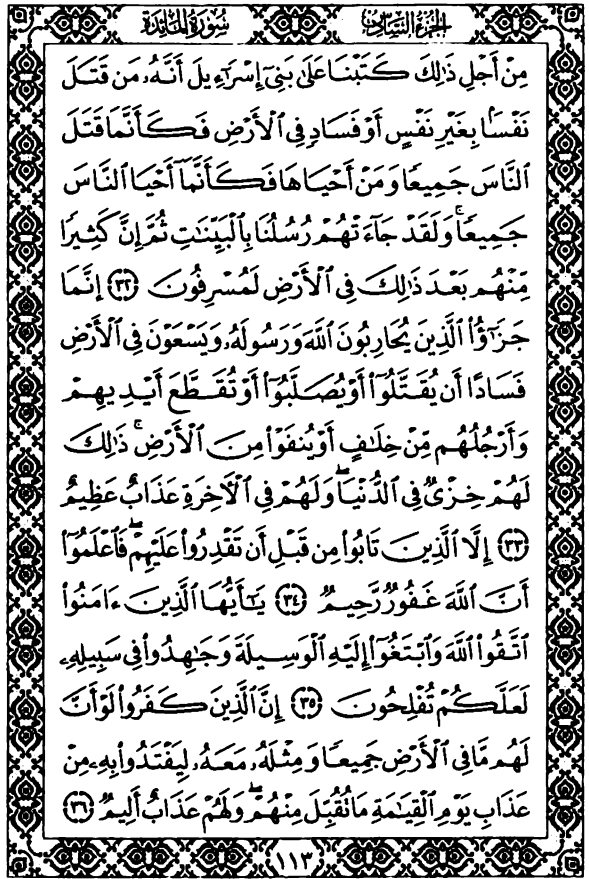 سُورَةُ المَائـدة
الجُزءُ السَّادِسُ
مِنۡ أَجۡلِ ذَٰلِكَ كَتَبۡنَا عَلَىٰ بَنِيٓ إِسۡرَٰٓءِيلَ أَنَّهُۥ مَن قَتَلَ
نَفۡسَۢا بِغَيۡرِ نَفۡسٍ أَوۡ فَسَادٖ فِي ٱلۡأَرۡضِ فَكَأَنَّمَا قَتَلَ
ٱلنَّاسَ جَمِيعٗا وَمَنۡ أَحۡيَاهَا فَكَأَنَّمَآ أَحۡيَا ٱلنَّاسَ
جَمِيعٗاۚ وَلَقَدۡ جَآءَتۡهُمۡ رُسُلُنَا بِٱلۡبَيِّنَٰتِ ثُمَّ إِنَّ كَثِيرٗا
مِّنۡهُم بَعۡدَ ذَٰلِكَ فِي ٱلۡأَرۡضِ لَمُسۡرِفُونَ ٣٢ إِنَّمَا
جَزَٰٓؤُاْ ٱلَّذِينَ يُحَارِبُونَ ٱللَّهَ وَرَسُولَهُۥ وَيَسۡعَوۡنَ فِي ٱلۡأَرۡضِ
فَسَادًا أَن يُقَتَّلُوٓاْ أَوۡ يُصَلَّبُوٓاْ أَوۡ تُقَطَّعَ أَيۡدِيهِمۡ
وَأَرۡجُلُهُم مِّنۡ خِلَٰفٍ أَوۡ يُنفَوۡاْ مِنَ ٱلۡأَرۡضِۚ ذَٰلِكَ
لَهُمۡ خِزۡيٞ فِي ٱلدُّنۡيَاۖ وَلَهُمۡ فِي ٱلۡأٓخِرَةِ عَذَابٌ عَظِيمٌ
٣٣ إِلَّا ٱلَّذِينَ تَابُواْ مِن قَبۡلِ أَن تَقۡدِرُواْ عَلَيۡهِمۡۖ فَٱعۡلَمُوٓاْ
أَنَّ ٱللَّهَ غَفُورٞ رَّحِيمٞ ٣٤ يَٰٓأَيُّهَا ٱلَّذِينَ ءَامَنُواْ
ٱتَّقُواْ ٱللَّهَ وَٱبۡتَغُوٓاْ إِلَيۡهِ ٱلۡوَسِيلَةَ وَجَٰهِدُواْ فِي سَبِيلِهِۦ
لَعَلَّكُمۡ تُفۡلِحُونَ ٣٥ إِنَّ ٱلَّذِينَ كَفَرُواْ لَوۡ أَنَّ
لَهُم مَّا فِي ٱلۡأَرۡضِ جَمِيعٗا وَمِثۡلَهُۥ مَعَهُۥ لِيَفۡتَدُواْ بِهِۦ مِنۡ
عَذَابِ يَوۡمِ ٱلۡقِيَٰمَةِ مَا تُقُبِّلَ مِنۡهُمۡۖ وَلَهُمۡ عَذَابٌ أَلِيمٞ ٣٦
١١٣